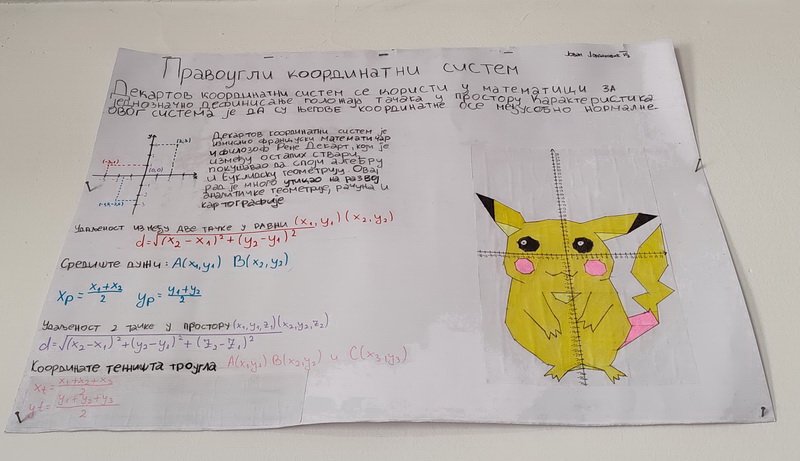 Правоугли координатни систем
Декартов координатни систем се користи у математици за
једнозначно дефинисање положај тачака у простору карактеристика
овог система је да су његове координатне осе међусобно нормалне.
Декартов координатни систем је
француски математичар
и филозоф Рене Декарт, који је
између осталих ствари
покушавао да споји алгебру
и Еуклидску геометрију. Овај
рад је много утицао на развој
аналитичке геометрије, рачуна и
картографије
y
x
(0,0)
Удаљеност између две тачке у равни (x₁, y₁) (x₂, y₂)
d=√(x₂ – x₁)² + (y₂ – y₁)²
Средиште дужи: A(x₁,y₁) B(x₂,y₂)
xp = x₁+x₂/2 yp = y₁+y₂/2
Удаљеност 2 тачке у простору (x₁,y₁,z₁)(x₂,y₂,z₂)
d=√(x₂ – x₁)² + (y₂ – y₁)² + (z₂ – z₁)²
Координате теништа троугла A(x₁y₁) B(x₂,y₂) и C(x₃,y₃)
xt = x₁+x₂+x₃/2
yt = y₁+y₂+y₃/2